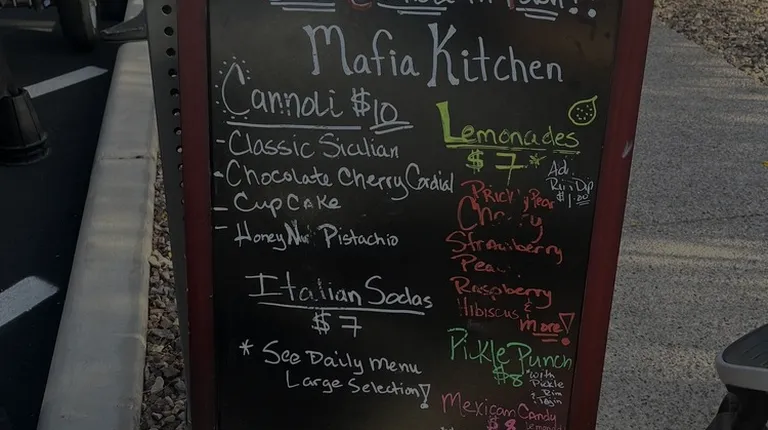 Mafia Kitchen
Cannoli $10
- Classic Sicilian
- Chocolate Cherry Cordial
- Cup Cake
- Honey Nut Pistachio
Italian Sodas
$7
* See Daily Menu
Large Selection!
Lemonades
$7*
Ad
Rim Dip
$1.00
Prickly Pear
Cherry
Strawberry
Raspberry
Hibiscus &
more!
Pickle Punch
$8
*with
Pickle
Rim
& Tajin
Mexican Candy
$8